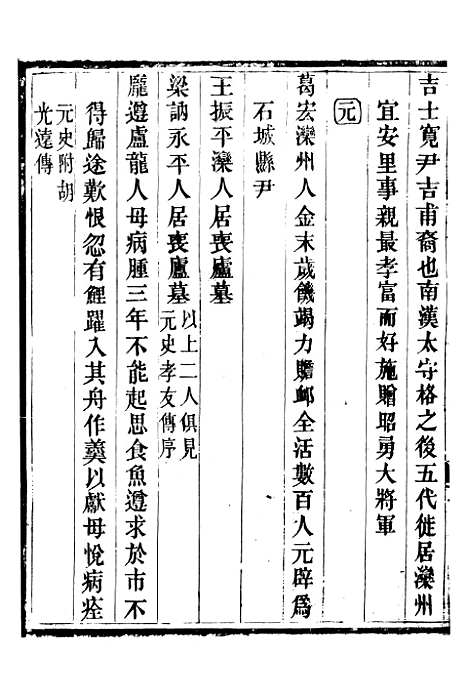 吉士寬尹吉甫裔也南漢太守格之後五代徙居灤州
宜安里事親最孝富而好施贈昭勇大將軍
元
葛宏灤州人金末歲饑竭力贍䘏全活數百人元辟爲
石城縣尹
王振平灤人居喪廬墓
梁訥永平人居喪廬墓以上二人俱見
元史孝友傳序
龐遵盧龍人母病腫三年不能起思食魚遵求於市不
得歸途歎恨忽有鯉躍入其舟作羹以獻母悅病痊
元史附胡
光遠傳